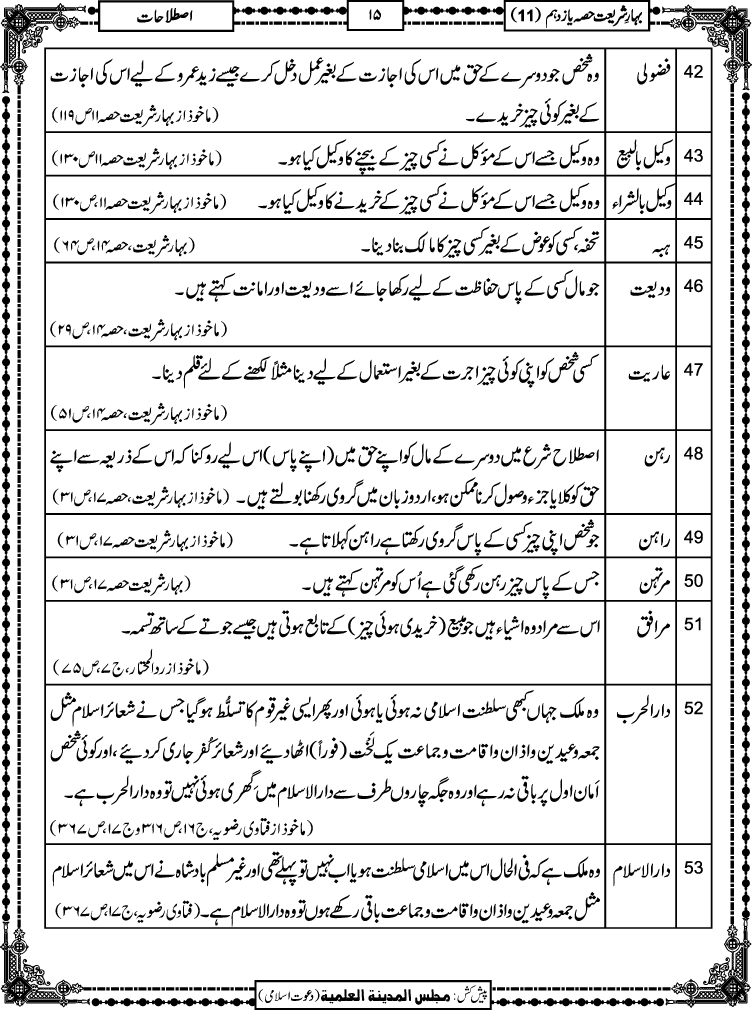 بہارِ شریعت حصہ یازدہم (11)
۱۵
اصطلاحات
42 فضولی وہ شخص جو دوسرے کے حق میں اس کی اجازت کے بغیر عمل دخل کرے جیسے زید عمرو کے لیے اس کی اجازت
کے بغیر کوئی چیز خریدے۔ (ماخوذ از بہار شریعت حصہ ۱۱ ص ۱۱۹)
43 وکیل بالبیع وہ وکیل جسے اس کے مؤکل نے کسی چیز کے بیچنے کا وکیل کیا ہو۔ (ماخوذ از بہار شریعت حصہ ۱۱ ص ۱۳۰)
44 وکیل بالشراء وہ وکیل جسے اس کے مؤکل نے کسی چیز کے خریدنے کا وکیل کیا ہو۔ (ماخوذ از بہار شریعت حصہ ۱۱، ص ۱۳۰)
45 ہبہ تحفہ، کسی کو عوض کے بغیر کسی چیز کا مالک بنا دینا۔ (بہار شریعت، حصہ ۱۴، ص ۶۴)
46 ودیعت جو مال کسی کے پاس حفاظت کے لیے رکھا جائے اسے ودیعت اور امانت کہتے ہیں۔
(ماخوذ از بہار شریعت، حصہ ۱۴، ص ۲۹)
47 عاریت کسی شخص کو اپنی کوئی چیز اجرت کے بغیر استعمال کے لیے دینا مثلاً لکھنے کے لئے قلم دینا۔
(ماخوذ از بہار شریعت، حصہ ۱۴، ص ۵۱)
48 رہن اصطلاح شرع میں دوسرے کے مال کو اپنے حق میں (اپنے پاس) اس لیے روکنا کہ اس کے ذریعہ سے اپنے
حق کو کلا یا جزء وصول کرنا ممکن ہو، اردو زبان میں گروی رکھنا بولتے ہیں۔ (ماخوذ از بہار شریعت، حصہ ۱۷، ص ۳۱)
49 راہن جو شخص اپنی چیز کسی کے پاس گروی رکھتا ہے راہن کہلاتا ہے۔ (ماخوذ از بہار شریعت حصہ ۱۷، ص ۳۱)
50 مرتہن جس کے پاس چیز رہن رکھی گئی ہے اُس کو مرتہن کہتے ہیں۔ (بہار شریعت حصہ ۱۷، ص ۳۱)
51 مرافق اس سے مراد وہ اشیاء ہیں جو مبیع (خریدی ہوئی چیز) کے تابع ہوتی ہیں جیسے جوتے کے ساتھ تسمہ۔
(ماخوذ از رد المحتار، ج ۷، ص ۷۵)
52 دار الحرب وہ ملک جہاں کبھی سلطنت اسلامی نہ ہوئی یا ہوئی اور پھر ایسی غیر قوم کا تسلُّط ہو گیا جس نے شعائر اسلام مثل
جمعہ وعیدین واذان واقامت وجماعت یک لَخْت (فوراً) اٹھا دیئے اور شعائرِ کُفر جاری کر دیئے، اور کوئی شخص
اَمان اول پر باقی نہ رہے اور وہ جگہ چاروں طرف سے دار الاسلام میں گھری ہوئی نہیں تو وہ دار الحرب ہے۔
(ماخوذ از فتاوی رضویہ، ج ۱۶، ص ۳۱۶ و ج ۱۷، ص ۳۶۷)
53 دار الاسلام وہ ملک ہے کہ فی الحال اس میں اسلامی سلطنت ہو یا اب نہیں تو پہلے تھی اور غیر مسلم بادشاہ نے اس میں شعائر اسلام
مثل جمعہ وعیدین واذان واقامت وجماعت باقی رکھے ہوں تو وہ دار الاسلام ہے۔ (فتاوی رضویہ، ج ۱۷، ص ۳۶۷)
پیش کش: مجلس المدينة العلمية (دعوت اسلامی)